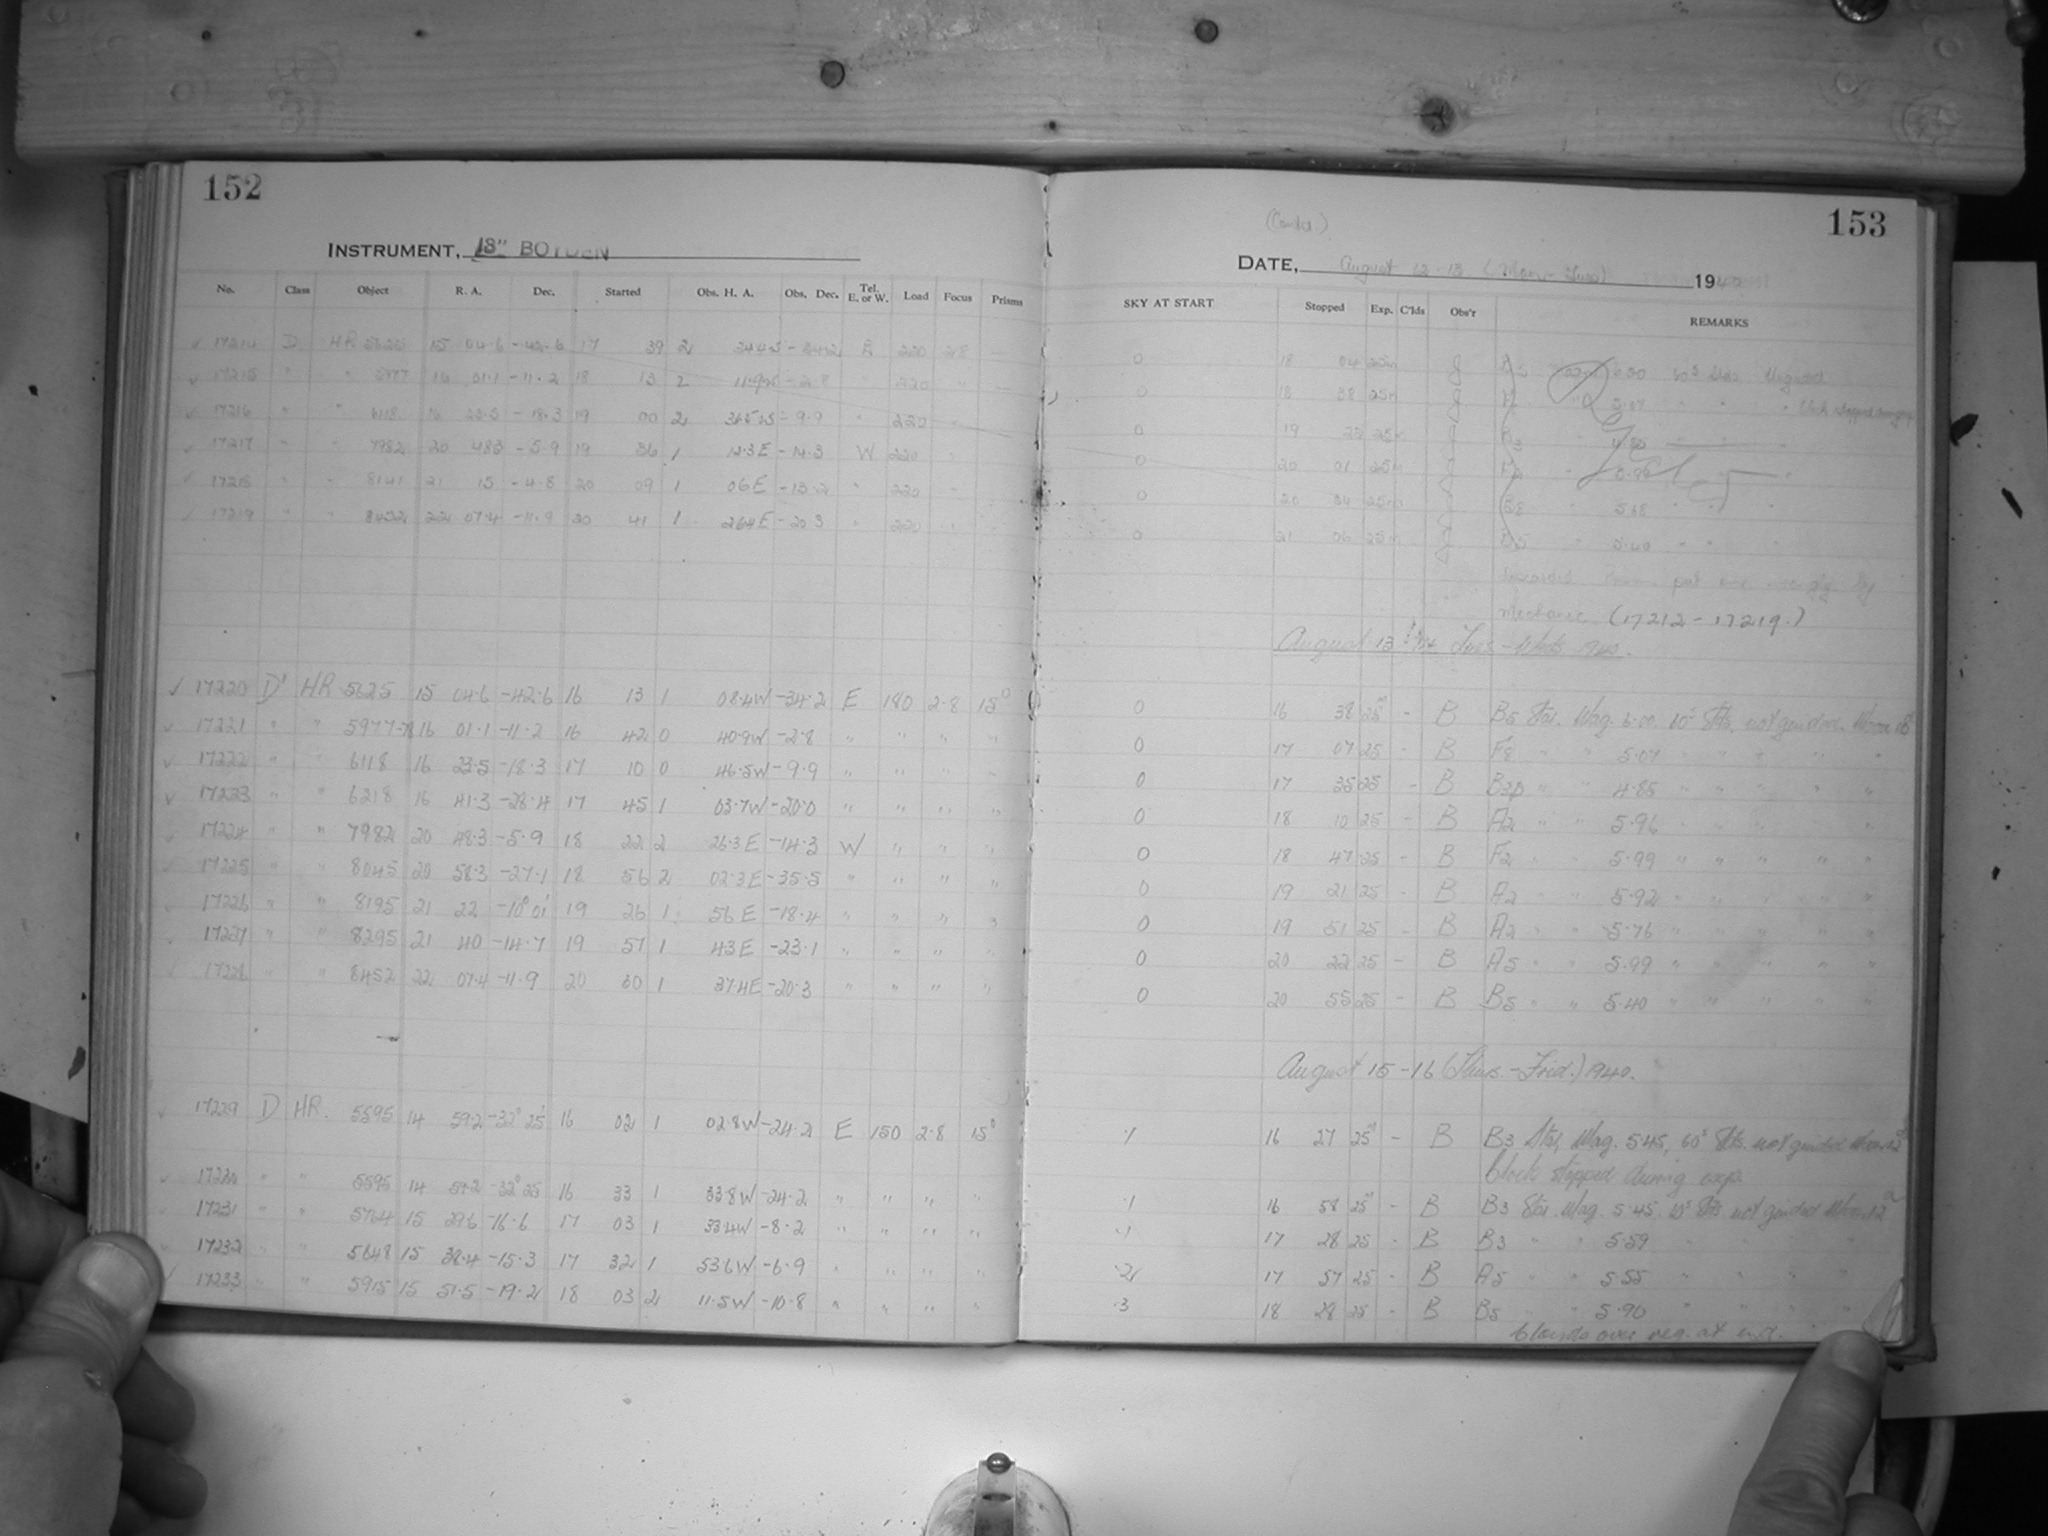 152
INSTRUMENT, 18" BOYDEN
No. Class Object R. A. Dec. Started Obs. H. A. Obs. Dec. Tel. E. or W. Load Focus Prisms
17214 D HR 5625 15 04.6 -42.6 17 39 2 220
17215 " " 5977 16 01.1 -11.2 18 13 2 -2.8 220
17216 " " 6118 16 23.5 -18.3 19 00 2 -9.9 " 220
17217 " " 7982 20 48.3 -5.9 19 36 1 12.3E -14.3 W 220
17218 " " 8141 21 15 -4.8 20 09 1 06E -13.2 " 220
17219 " " 8452 22 07.4 -11.9 20 41 1 26.4E -20.3 " 220
17220 D' HR 5625 15 04.6 -42.6 16 13 1 08.4W -34.2 E 180 2.8 15°
17221 " " 5977-78 16 01.1 -11.2 16 42 0 40.9W -2.8 " " " "
17222 " " 6118 16 23.5 -18.3 17 10 0 46.5W -9.9 " " " "
17223 " " 6218 16 41.3 -28.4 17 45 1 03.7W -20.0 " " " "
17224 " " 7982 20 48.3 -5.9 18 22 2 26.3E -14.3 W " " "
17225 " " 8045 20 58.3 -27.1 18 56 2 02.3E -35.5 " " " "
17226 " " 8195 21 22 -10° 01' 19 26 1 56E -18.4 " " " "
17227 " " 8295 21 40 -14.7 19 57 1 43E -23.1 " " " "
17228 " " 8452 22 07.4 -11.9 20 30 1 37.4E -20.3 " " " "
17229 D HR. 5595 14 59.2 -32° 25' 16 02 1 02.8W -24.2 E 150 2.8 15°
17230 " " 5595 14 59.2 -32° 25 16 33 1 33.8W -24.2 " " " "
17231 " " 5764 15 29.6 -16.6 17 03 1 33.4W -8.2 " " " "
17232 " " 5648 15 38.4 -15.3 17 32 1 53.6W -6.9 " " " "
17233 " " 5915 15 51.5 -19.2 18 03 2 11.5W -10.8 " " " "
153
(Contd.)
DATE, August 12-13 (Mon-Tues) 1940
SKY AT START Stopped Exp. C'lds Obs'r REMARKS
0 18 04 25m J B5
0 18 38 25m J 5.07 " " " Clock stopped during exp.
0 19 25 25m J B3 4.85
0 20 01 25m J
0 20 34 25m J
0 21 06 25m J B5 " 5.40 " "
mechanic (17212-17219.)
August 13-14 Tues-Weds 1940.
0 16 38 25m - B B5 Star. Mag. 6.00. 10s Sets. not guided. Moon 10d
0 17 07 25 - B F8 " " 5.07 " " " " "
0 17 35 25 - B B3p " " 4.85 " " " " "
0 18 10 25 - B A2 " " 5.96 " " " " "
0 18 47 25 - B F2 " " 5.99 " " " " "
0 19 21 25 - B A2 " " 5.92 " " " " "
0 19 51 25 - B A2 " " 5.76 " " " " "
0 20 22 25 - B A5 " " 5.99 " " " " "
0 20 55 25 - B B5 " " 5.40 " " " " "
August 15-16 (Thurs.-Frid.) 1940.
.1 16 27 25m - B B3 Star, Mag. 5.45, 60s Sets. not guided Moon 12d
Clock stopped during exp.
.1 16 58 25m - B B3 Star. Mag. 5.45. 10s Sets not guided Moon 12d
.1 17 28 25 - B B3 " " 5.59
.2 17 57 25 - B A5 " " 5.55 " " " "
.3 18 28 25 - B B5 " " 5.90 " " " "
Clouds over reg. at end.